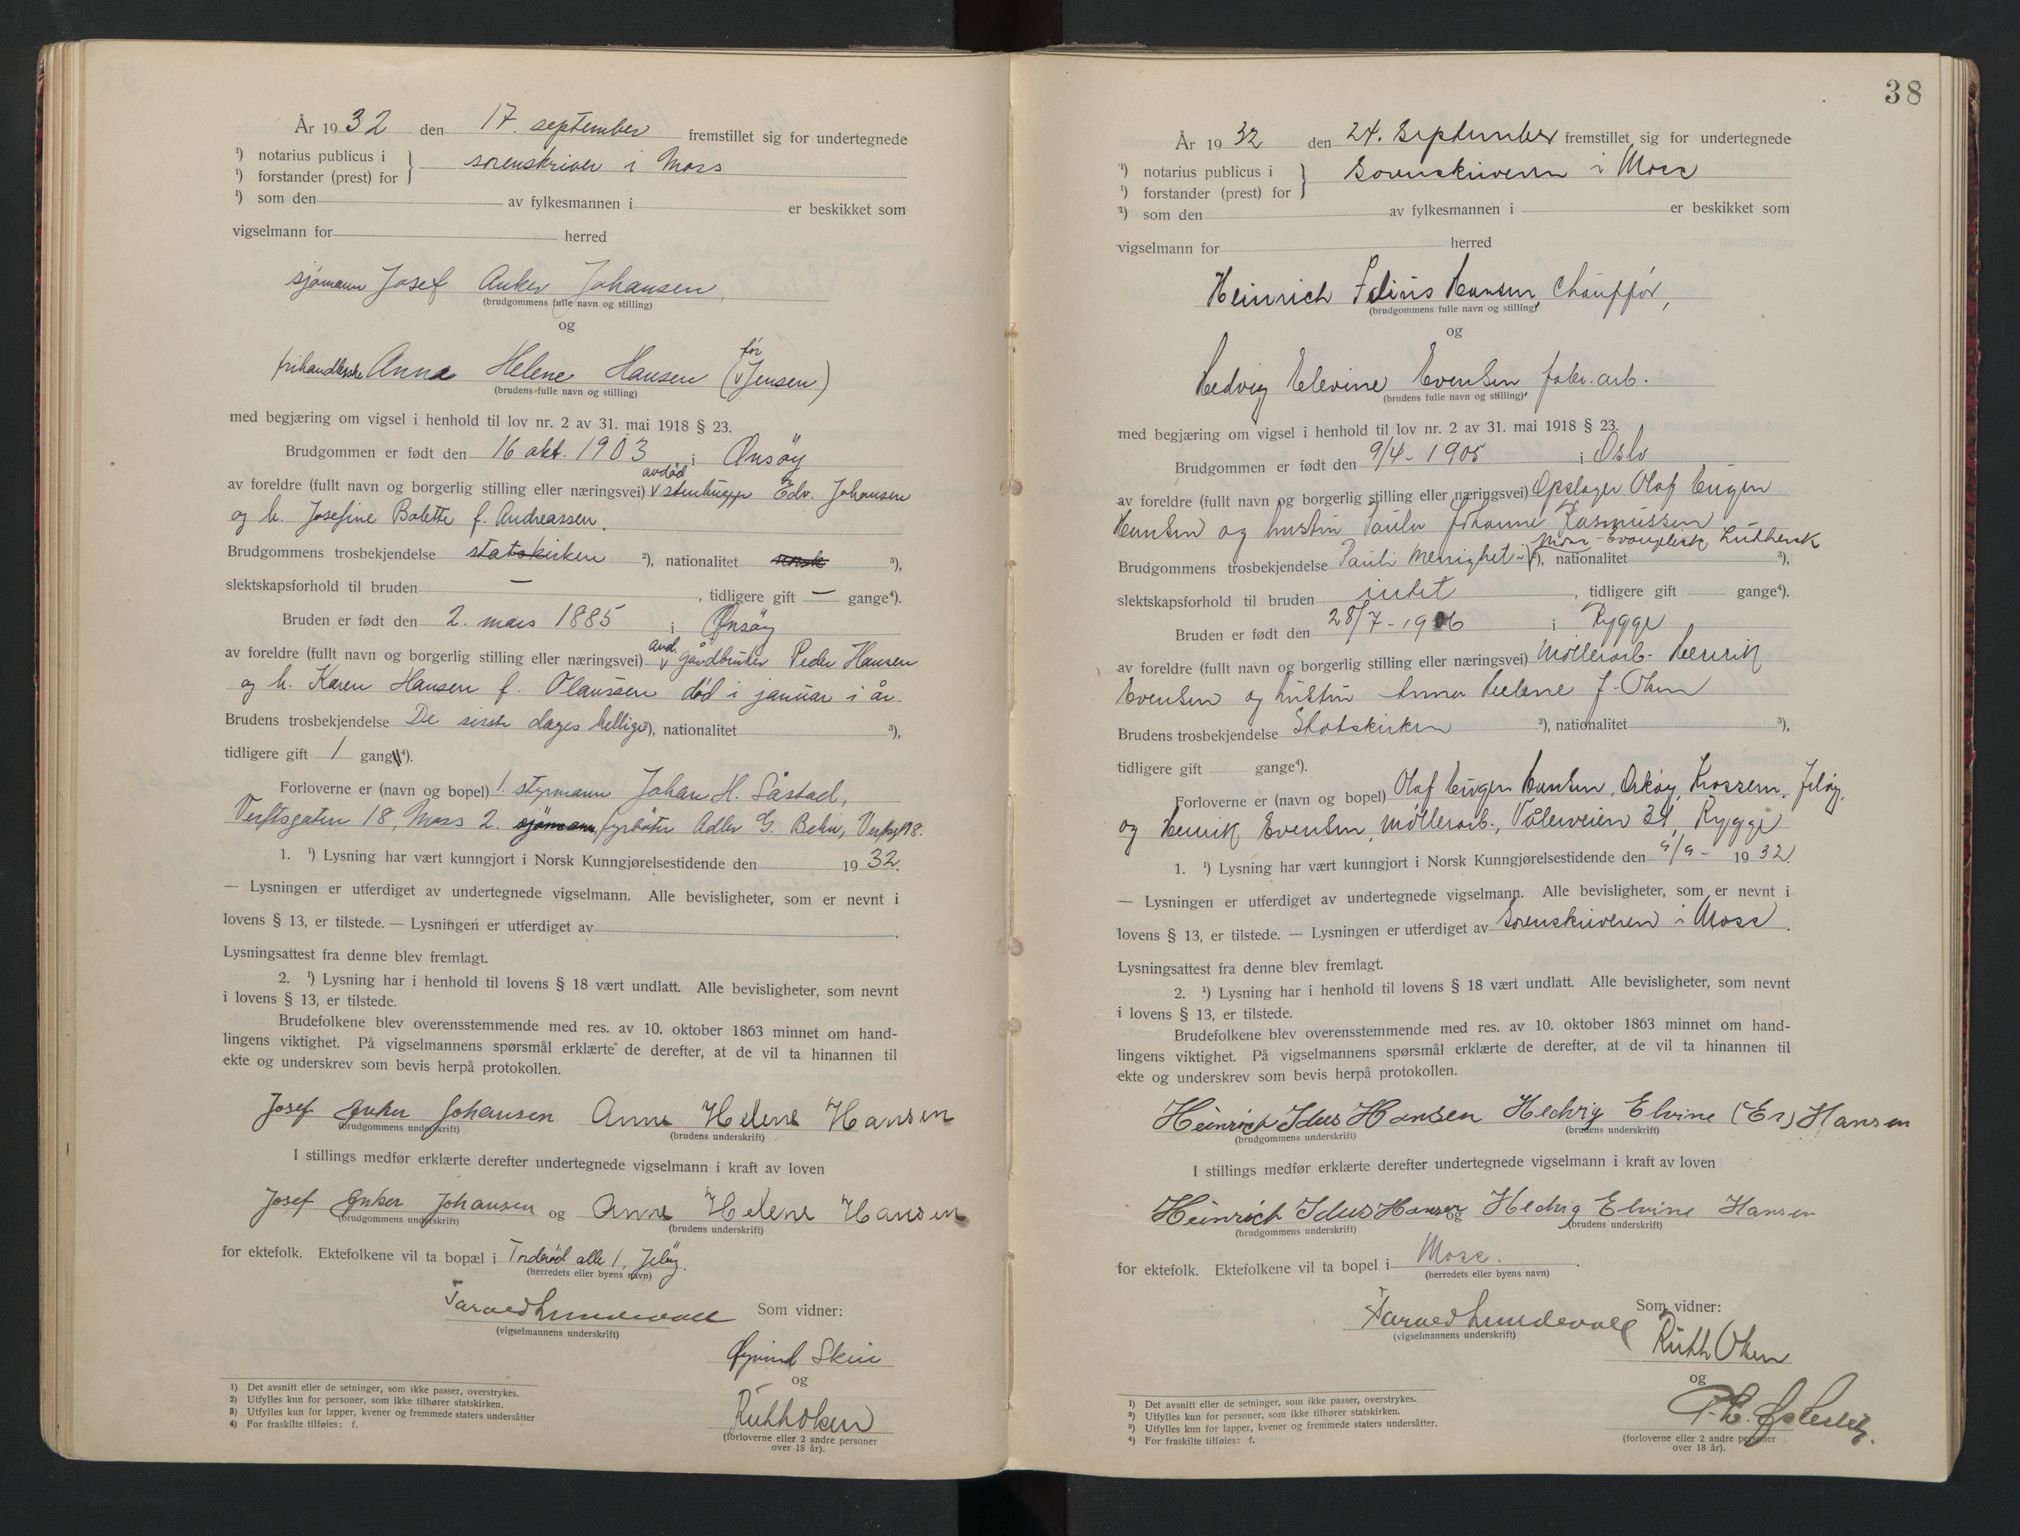 År 1932 den 17. september fremstillet sig for undertegnede
¹) notarius publicus i
¹) forstander (prest) for } sorenskriver i Moss
¹) som den av fylkesmannen i er beskikket som
vigselmann for herred
sjømann Josef Anker Johansen,
(brudgommens fulle navn og stilling)
og
frihandlerske Anna Helene Hansen (før Jensen)
(brudens fulle navn og stilling)
med begjæring om vigsel i henhold til lov nr. 2 av 31. mai 1918 § 23.
Brudgommen er født den 16 okt. 1903 i Onsøy
av foreldre (fullt navn og borgerlig stilling eller næringsvei) avdød stenhugger Edv. Johansen
og h. Josefine Bolette f. Andreassen.
Brudgommens trosbekjendelse statskirken ²), nationalitet norsk ³),
slektskapsforhold til bruden — , tidligere gift — gange⁴).
Bruden er født den 2. mars 1885 i Onsøy
av foreldre (fullt navn og borgerlig stilling eller næringsvei) avd. gårdbruker Peder Hansen
og h. Karen Hansen f. Olaussen død i januar i år
Brudens trosbekjendelse De siste dages hellige ²), nationalitet ³),
tidligere gift 1 gang ⁴).
Forloverne er (navn og bopel) 1. styrmann Johan H. Såstad,
Verftsgaten 18, Moss 2. sjømann fyrbøter Adler G. Behn, Verftsg 18.
1. ¹) Lysning har vært kunngjort i Norsk Kunngjørelsestidende den 1932.
— Lysningen er utferdiget av undertegnede vigselmann. Alle bevisligheter, som er nevnt i
lovens § 13, er tilstede. — Lysningen er utferdiget av .
Lysningsattest fra denne blev fremlagt.
2. ¹) Lysning har i henhold til lovens § 18 vært undlatt. Alle bevisligheter, som nevnt
i lovens § 13, er tilstede.
Brudefolkene blev overensstemmende med res. av 10. oktober 1863 minnet om hand-
lingens viktighet. På vigselmannens spørsmål erklærte de derefter, at de vil ta hinannen til
ekte og underskrev som bevis herpå protokollen.
Josef Anker Johansen Anna Helene Hansen
(brudgommens underskrift) (brudens underskrift)
I stillings medfør erklærte derefter undertegnede vigselmann i kraft av loven
Josef Anker Johansen og Anna Helene Hansen
(brudgommens underskrift) (brudens underskrift)
for ektefolk. Ektefolkene vil ta bopæl i Trderød alle 1, Jeløy.
(herredets eller byens navn)
Tarald Lundevall Som vidner:
(vigselmannens underskrift)
Øyvind Skui
og
Ruth Oken
(forloverne eller 2 andre personer
over 18 år).
1) Det avsnitt eller de setninger, som ikke passer, overstrykes.
2) Utfylles kun for personer, som ikke tilhører statskirken.
3) Utfylles kun for lapper, kvener og fremmede staters undersåtter
4) For fraskilte tilføies: f.
38
År 1932 den 24. September fremstillet sig for undertegnede
¹) notarius publicus i
¹) forstander (prest) for } Sorenskriveren i Moss
²) som den av fylkesmannen i er beskikket som
vigselmann for herred
Heinrich Idus Hansen, Chauffør,
(brudgommens fulle navn og stilling)
og
Hedvig Elevine Evensen, fabr. arb.
(brudens fulle navn og stilling)
med begjæring om vigsel i henhold til lov nr. 2 av 31. mai 1918 § 23.
Brudgommen er født den 9/4 - 1905 i Oslo
av foreldre (fullt navn og borgerlig stilling eller næringsvei) Opslager Olaf Eugen
Hansen og hustru Paula Johanne Rasmussen
Brudgommens trosbekjendelse Pauli Menighet i Moss - Evangelisk Luthersk ²), nationalitet ³),
slektskapsforhold til bruden intet , tidligere gift gange⁴).
Bruden er født den 28/7 - 1906 i Rygge
av foreldre (fullt navn og borgerlig stilling eller næringsvei) Møllerarb. Henrik
Evensen og hustru Anna Helene f. Oken
Brudens trosbekjendelse Statskirken ²), nationalitet ³),
tidligere gift gange⁴).
Forloverne er (navn og bopel) Olaf Eugen Hansen, Orkøy, Krossern, Jeløy,
og Henrik Evensen, Møllerarb., Vålerveien 31, Rygge
1. ¹) Lysning har vært kunngjort i Norsk Kunngjørelsestidende den 9/9 - 1932.
— Lysningen er utferdiget av undertegnede vigselmann. Alle bevisligheter, som er nevnt i
lovens § 13, er tilstede. — Lysningen er utferdiget av Sorenskriveren i Moss.
Lysningsattest fra denne blev fremlagt.
2. ¹) Lysning har i henhold til lovens § 18 vært undlatt. Alle bevisligheter, som nevnt
i lovens § 13, er tilstede.
Brudefolkene blev overensstemmende med res. av 10. oktober 1863 minnet om hand-
lingens viktighet. På vigselmannens spørsmål erklærte de derefter, at de vil ta hinannen til
ekte og underskrev som bevis herpå protokollen.
Heinrich Idus Hansen Hedvig Elvine (Ev) Hansen
(brudgommens underskrift) (brudens underskrift)
I stillings medfør erklærte derefter undertegnede vigselmann i kraft av loven
Heinrich Idus Hansen og Hedvig Elvine Hansen
(brudgommens underskrift) (brudens underskrift)
for ektefolk. Ektefolkene vil ta bopel i Moss.
(herredets eller byens navn)
Tarald Lundevall Som vidner:
(vigselmannens underskrift)
Ruth Oken
og
(forloverne eller 2 andre personer
over 18 år).
1) Det avsnitt eller de setninger, som ikke passer, overstrykes.
2) Utfylles kun for personer, som ikke tilhører statskirken.
3) Utfylles kun for lapper, kvener og fremmede staters undersåtter.
4) For fraskilte tilføies: f.